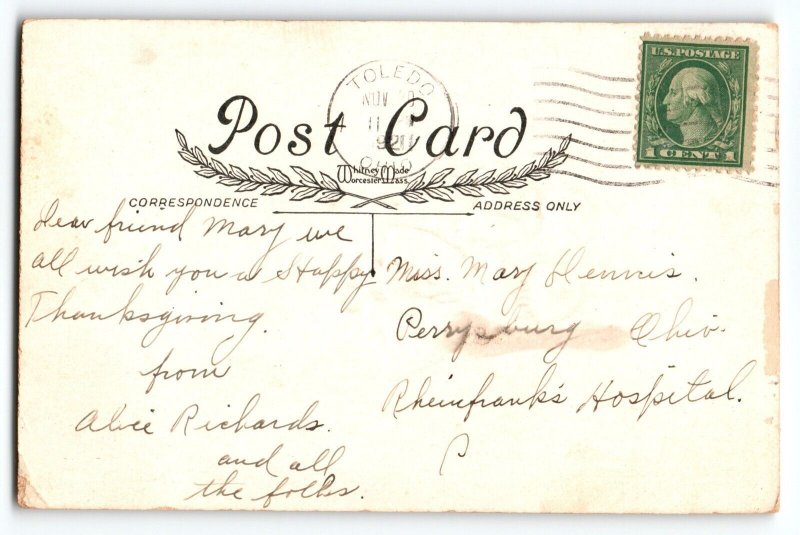 U.S. POSTAGE
1 CENT 1
TOLEDO
NOV
11
OHIO
Post Card
Whitney Made
Worcester, Mass.
CORRESPONDENCE
ADDRESS ONLY
Dear friend Mary we
all wish you a Happy
Thanksgiving.
from
Alice Richards.
and all
the folks.
Miss. Mary Dennis.
Perrysburg Ohio.
Rheinfrank's Hospital.